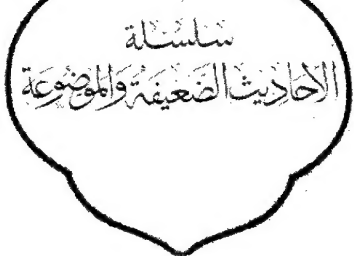 سلسلة
الأحاديث الضعيفة والموضوعة